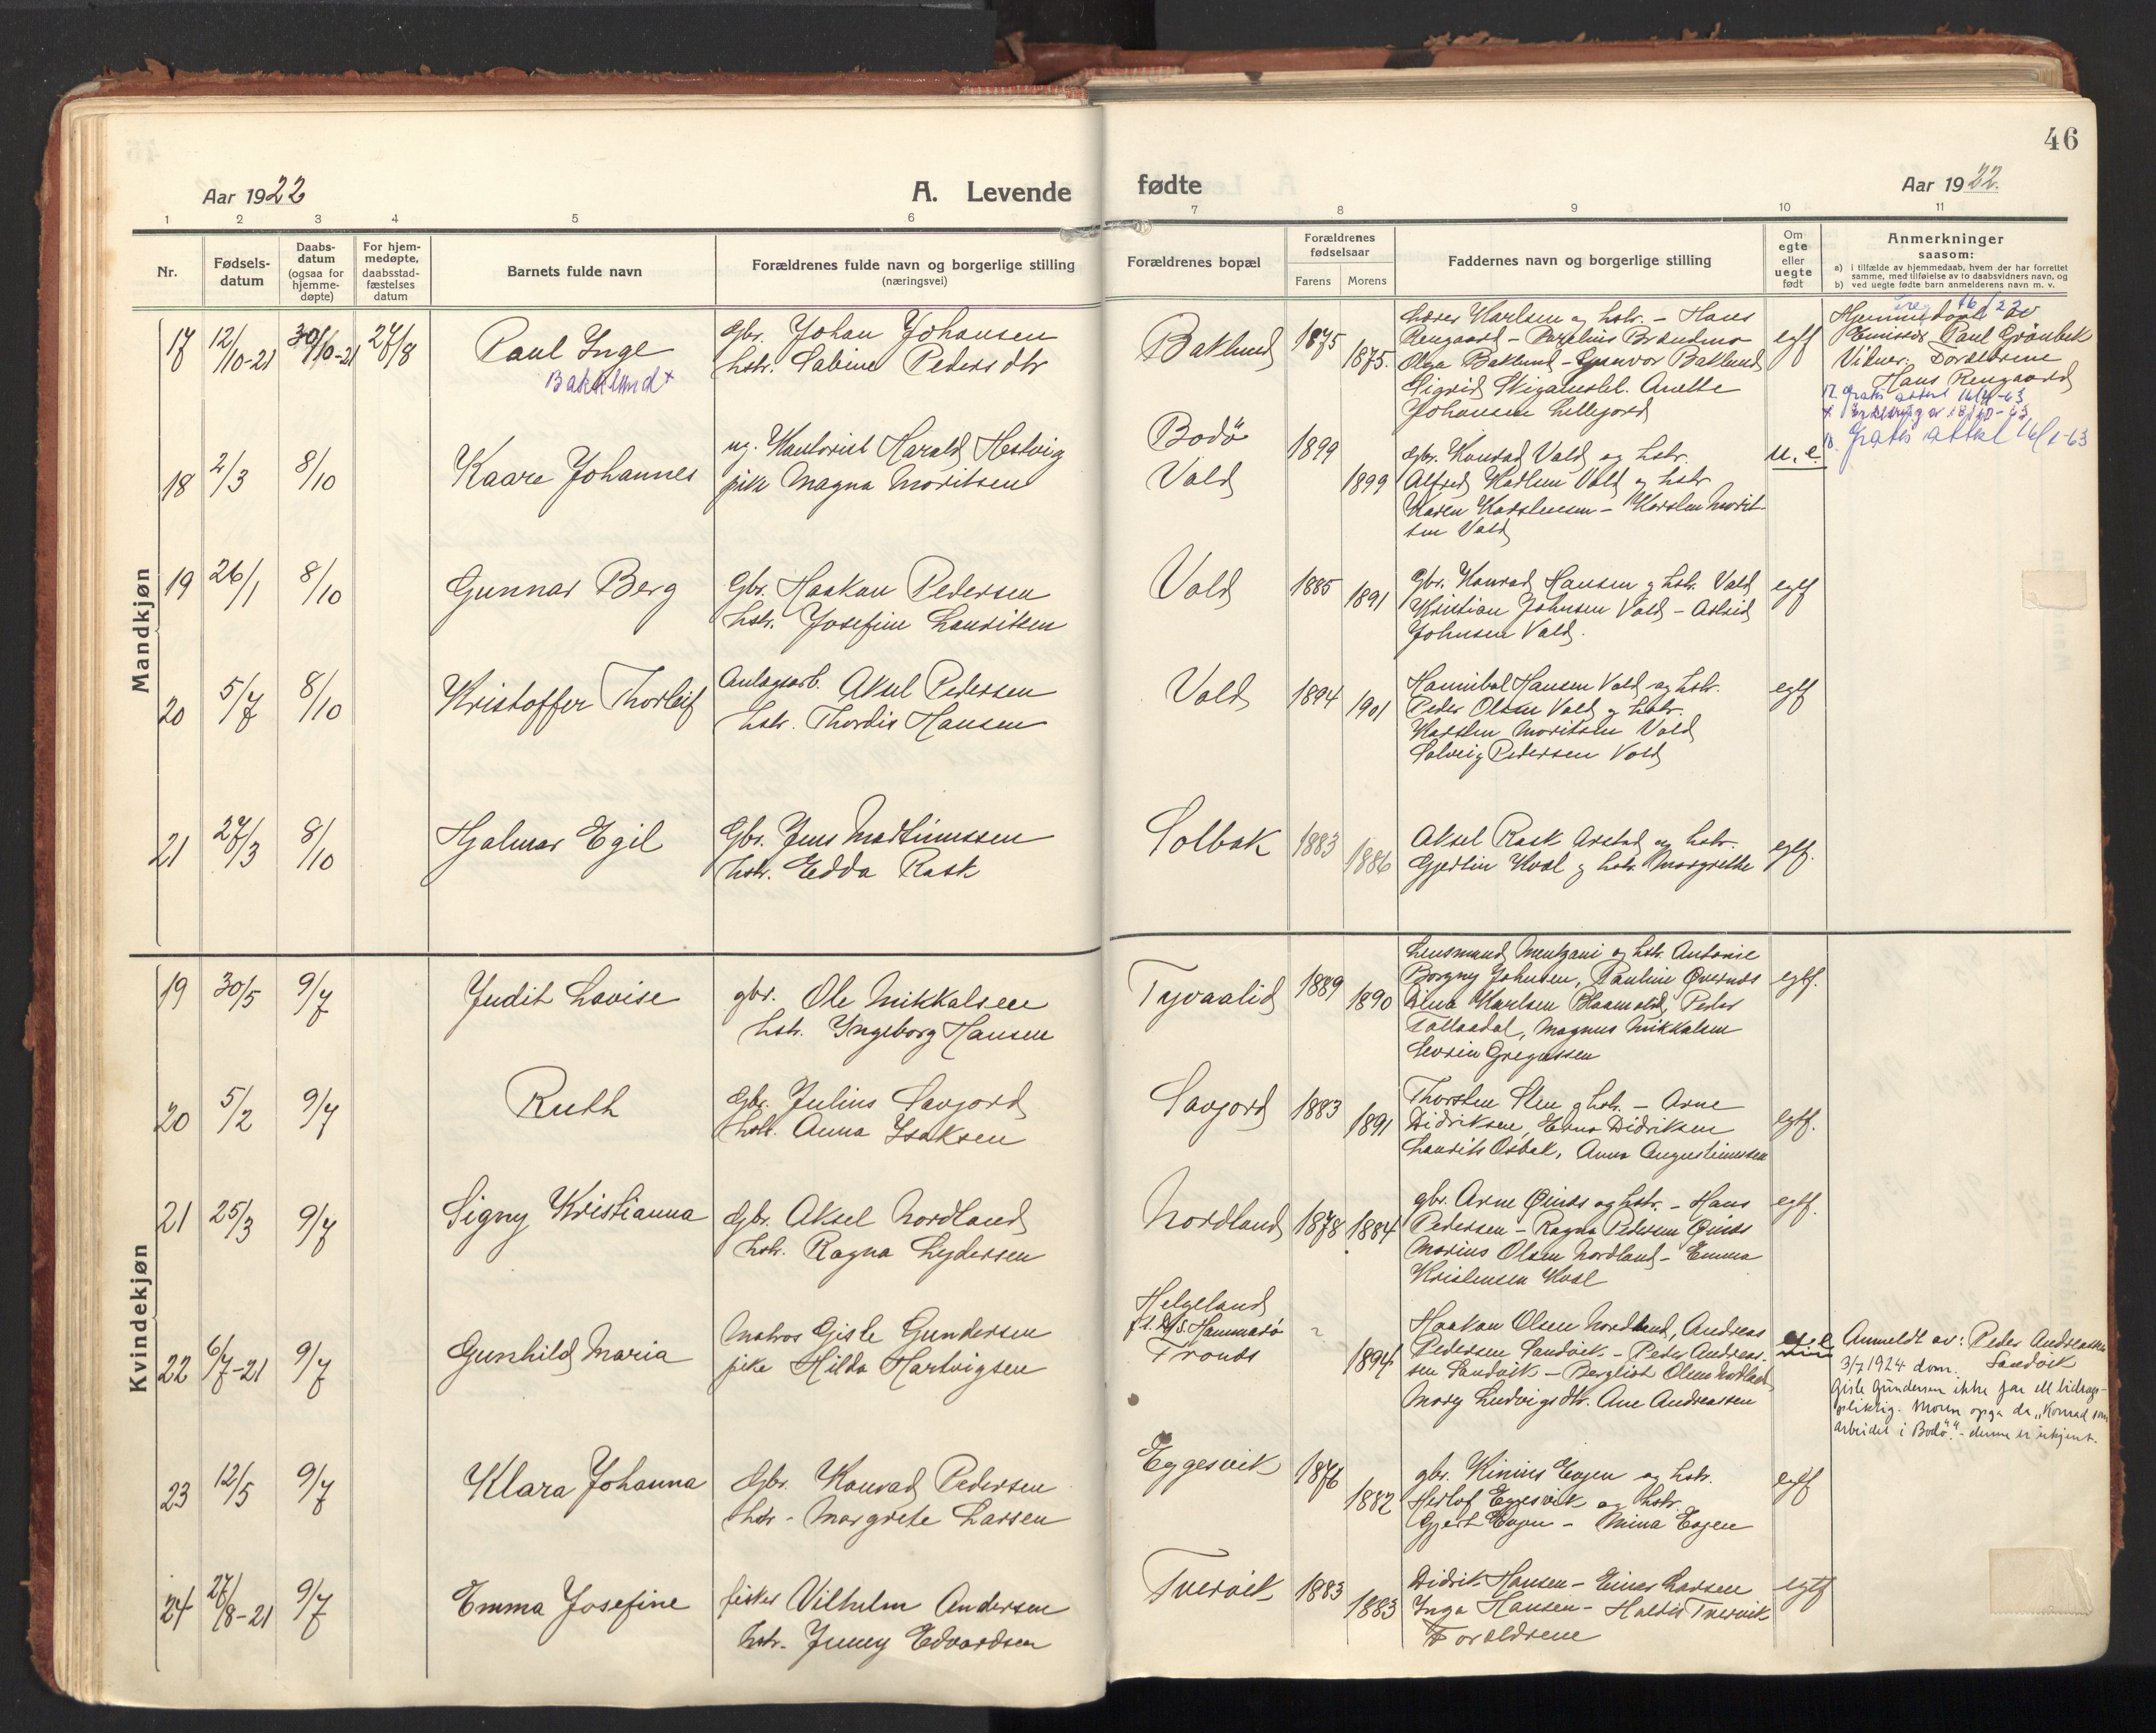 46
Aar 1922
A. Levende
fødte
Aar 1922.
1 2 3 4 5 6 7 8 9 10 11
Nr.
Fødsels-
datum
Daabs-
datum
(ogsaa for
hjemme-
døpte)
For hjem-
medøpte,
daabsstad-
fæstelses
datum
Barnets fulde navn
Forældrenes fulde navn og borgerlige stilling
(næringsvei)
Forældrenes bopæl
Forældrenes
fødselsaar
Farens Morens
Faddernes navn og borgerlige stilling
Om
egte
eller
uegte
født
Anmerkninger
saasom:
a) i tilfælde av hjemmedaab, hvem der har forrettet
samme, med tilføielse av to daabsvidners navn, og
b) ved uegte fødte barn anmelderens navn m. v.
Mandkjøn
17 12/10-21 30/10-21 27/8 Paul Inge
Bakklund x
Gbr. Johan Johansen
hstr. Sabine Pedersdtr
Baklund 1875 1875.
Lærer Karlsen og hstr. - Hans
Rengaard
Olga Baklund - Gunvor Baklund
Sigrid Anette
Johansen Lillejord
egtf
Hjemmedøpt av
Emissær Paul Grönbek
Vidner: Forældrene
Hans Rengaard
17. Gratis attest 16/1-63
18. Gratis attest 16/1-63
18 2/3 8/10 Kaare Johannes
ug. Kontorist Harald Hestvig
pike Magna Moritsen
Bodö
Vald
1899 1899
Gbr. Konrad Vald og hstr.
Alfred Vald og hstr
Karen Karstensen - Karsten Morit-
sen Vald
u.e.
19 26/1 8/10 Gunnar Berg
Gbr. Haakon Pedersen
hstr. Josefine Lauritsen
Vald 1885 1891
Gbr. Konrad Hansen og hstr. Vald
Kristian Johnsen Vald - Astrid
Johnsen Vald.
egtf
20 5/7 8/10 Kristoffer Thorleif
Anlægsarb. Aksel Pedersen
hstr. Thordis Hansen
Vald 1894 1901
Hannibal Hansen Vald og hstr.
Peder Olsen Vald og hstr.
Karsten Moritsen Vald
Solveig Pedersen Vald
egtf
21 27/3 8/10 Hjalmar Egil
Gbr. Jens Martinussen
hstr. Edda Rask
Solbak 1883 1886
Aksel Rask Arstad og hstr.
Gjertin Kval og hstr. Margrethe
egtf.
Kvindekjøn
19 30/5 9/7 Judit Lovise
gbr. Ole Mikkalsen
hstr. Ingeborg Hansen
Tyvaalid 1889 1890
Lensmand Mentzoni og hstr. Antonie
Borgny Johnsen, Pauline
Karlsen Peder
Tollaadal, Magnus Mikkalsen
Sevrin Gregussen
egtf.
20 5/2 9/7 Ruth
Gbr. Julius Savjord
hstr. Anna Isaksen
Savjord 1883 1891
Thorsten Sten og hstr. - Arne
Didriksen, Erna Didriksen
Laurits Osbak, Anna Augustinussen
egtf.
21 25/3 9/7 Signy Kristianna
Gbr. Aksel Nordland
hstr. Ragna Lydersen
Nordland 1878 1884
gbr. Arne Øinæs og hstr. - Hans
Pedersen - Ragna Pedersen Øinæs
Marius Olsen Nordland - Emma
Kristensen Kval
egtf.
22 6/7-21 9/7 Gunhild Maria
Matros Gisle Gundersen
pike Hilda Hartvigsen
Helgeland
f.t. D/S. Hammarö
Tronæs
? 1894
Haakon Olsen Nordland, Andreas
Pedersen Sandvik - Peder Andreas-
sen Sandvik - Bergliot Olsen Nordland
Mary Ludvigsdtr. Ane Andreassen
Anmeldt av: Peder Andreassen
Sandvik
3/7 1924 dom.
Gisle Gundersen ikke far ell bidrags-
pliktig. Moren opga da „Konrad som
arbeidet i Bodö“ - denne er ukjent.
23 12/5 9/7 Klara Johanna
Gbr. Konrad Pedersen
hstr - Margrete Larsen
Eggesvik 1876 1882
gbr. Kinius Evjen og hstr.
Herlof Eggesvik og hstr.
Gjert Evjen - Mina Evjen
egtf
24 27/8-21 9/7 Emma Josefine
fisker Vilhelm Andersen
hstr. Jenny Edvardsen
Tvervik 1883 1883
Didrik Hansen - Einar Larsen
Inga Hansen - Haldis Tvervik
Forældrene
egtf